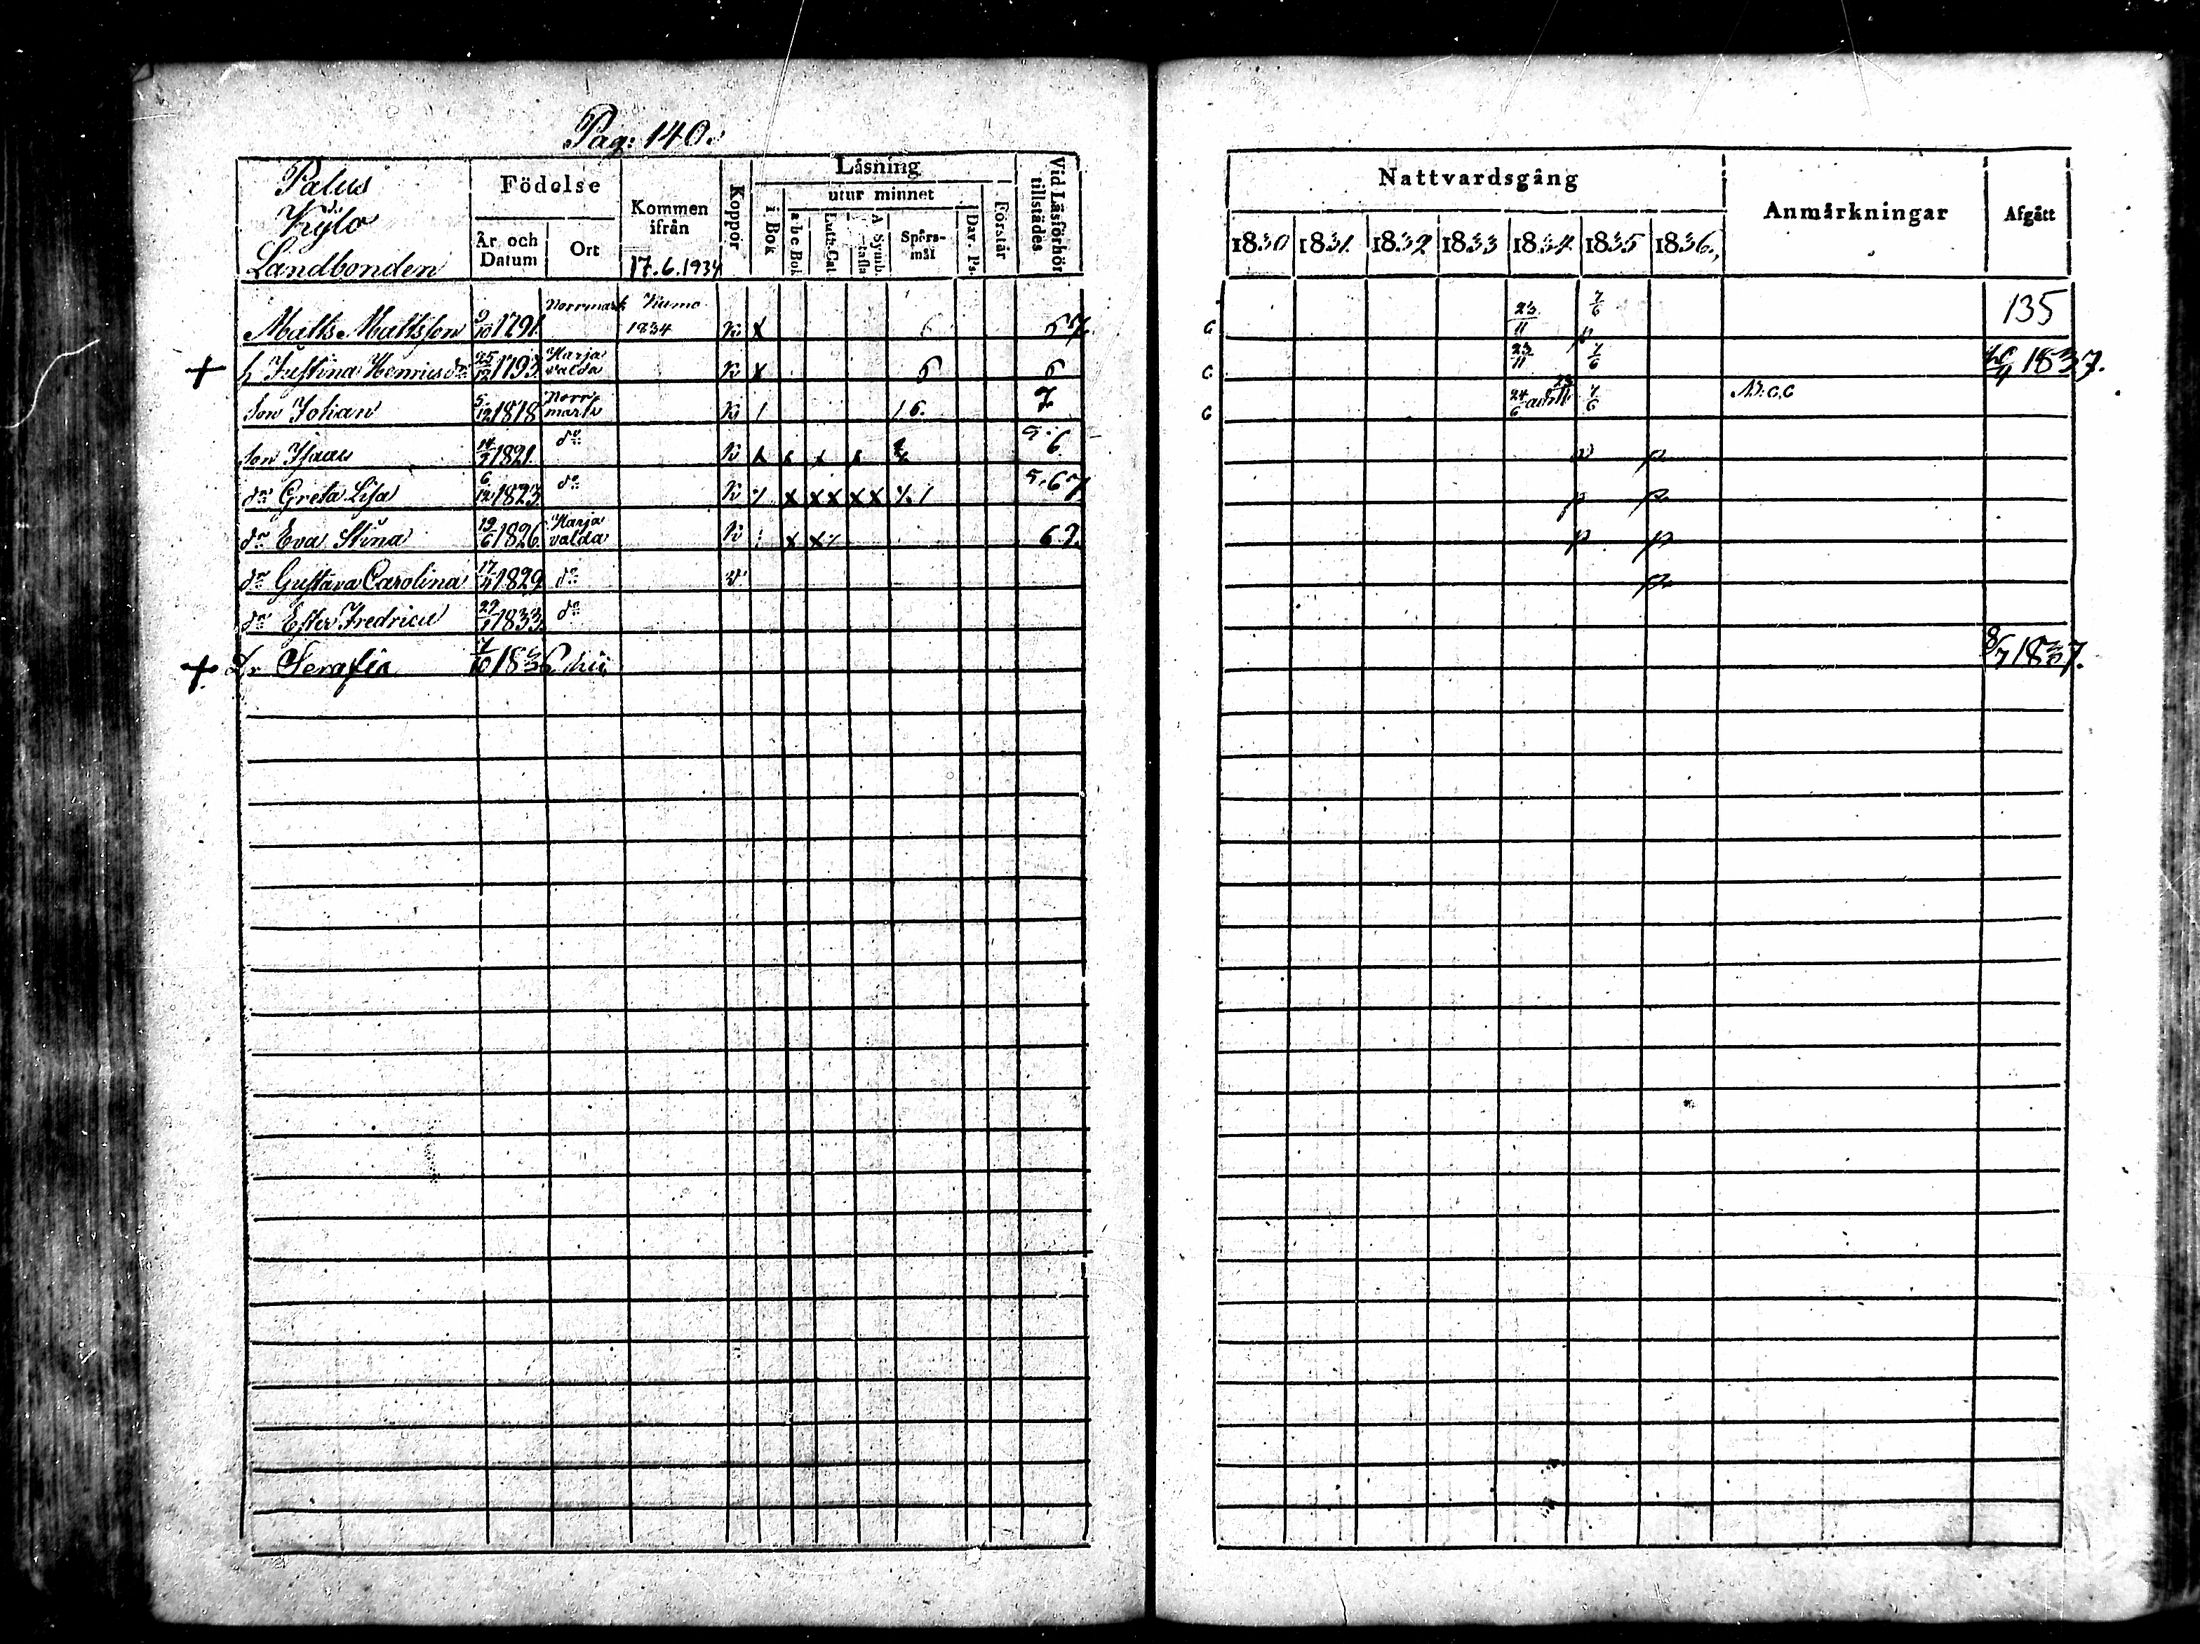 Pag: 140.
Palus
Kylo
Landbonden
Födelse
År och Datum
Ort
Kommen ifrån
17.6.1934
Koppor
Läsning
i Bok
utur minnet
a b c Bok
Luth. Cat.
A. Symb.
tafla
Spörs-mål
Dav. Ps.
Förstår
Vid Läsförhör tillstädes
Matts Mattsson 9/10 1791. Norrmark Kumo 1834 K x 6 6 7.
+ h Justina Henricsdr 25/12 1793. Harjavalda K x 6 6
Son Johan 5/12 1818 Norrmark K / 1 6. 7
Son Isaac 14/7 1821. do K 5. 6
dr Greta Lisa 6/12 1823. do K x x x x x 5. 6 7.
dr Eva Stina 19/6 1826. Harjavalda K x x 6. 7.
dr Gustava Carolina 17/11 1829 do v
dr Ester Fredrica 29/1 1833. do
+ Dr Serafia 7/10 1836 hii
Nattvardsgång
Anmärkningar
Afgått
1830 1831. 1832 1833 1834. 1835 1836.
G 23/11 7/6 p 135
G 23/11 7/6 1837.
G 24/6 7/6
p p
p p
p p
p
8/7 1837.